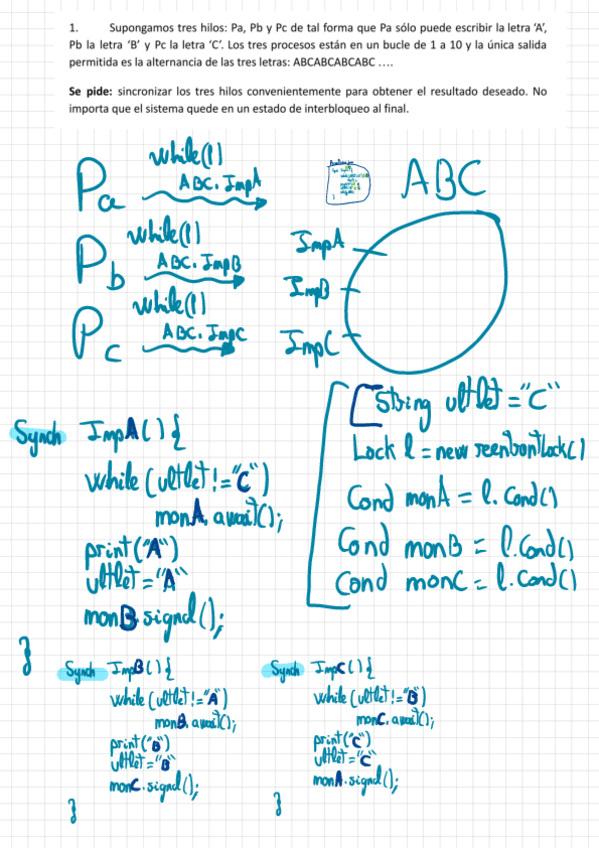 1. Supongamos tres hilos: Pa, Pb y Pc de tal forma que Pa sólo puede escribir la letra ‘A’,
Pb la letra ‘B’ y Pc la letra ‘C’. Los tres procesos están en un bucle de 1 a 10 y la única salida
permitida es la alternancia de las tres letras: ABCABCABCABC ….
Se pide: sincronizar los tres hilos convenientemente para obtener el resultado deseado. No
importa que el sistema quede en un estado de interbloqueo al final.
Pa while(1)
ABC.ImpA
Pb while(1)
ABC.ImpB
Pc while(1)
ABC.ImpC
ABC
ImpA
ImpB
ImpC
String ultlet="C"
Lock l = new reentrantLock()
Cond monA = l.Cond()
Cond monB = l.Cond()
Cond monC = l.Cond()
Synch ImpA(){
while(ultlet!="C")
monA.await();
print("A")
ultlet="A"
monB.signal();
}
Synch ImpB(){
while(ultlet!="A")
monB.await();
print("B")
ultlet="B"
monC.signal();
}
Synch ImpC(){
while(ultlet!="B")
monC.await();
print("C")
ultlet="C"
monA.signal();
}